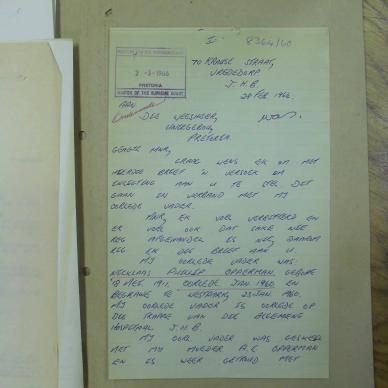 8364/60
2 -3-1966
PRETORIA
MASTER OF THE SUPREME COURT
70 KRAUSE STRAAT,
VREDEDORP
J.H.B
28 FEB 1966.
AAN
DIE WEESHEER,
PRETORIA.
GEAGTE MNR,
GRAAG WENS EK OM MET
HIERDIE BRIEF 'N VERSOEK OM
AAN U TE STEL. DIT
GAAN IN VERBAND MET MY
OORLEDE VADER.
MNR, EK VOEL VERONTREGD EN
EK VOEL OOK DAT SAKE NIE
REG AFGEHANDEL IS NIE, DAAROM
RIG EK DIE BRIEF AAN U
MY OORLEDE VADER WAS:
NICKLAAS PHILLIP OPPERMAN. GEBORE
1911, OORLEDE JAN 1960. EN
BEGRAWE TE WESTPARK, 23 JAN 1960.
MY OORLEDE VADER IS OORLEDE OP
DIE TRAPPE VAN DIE ALGEMENE
HOSPITAAL J.H.B.
MY OORL VADER WAS GESKEI
MET MY MOEDER A.E OPPERMAN
EN IS WEER GETROUD MET